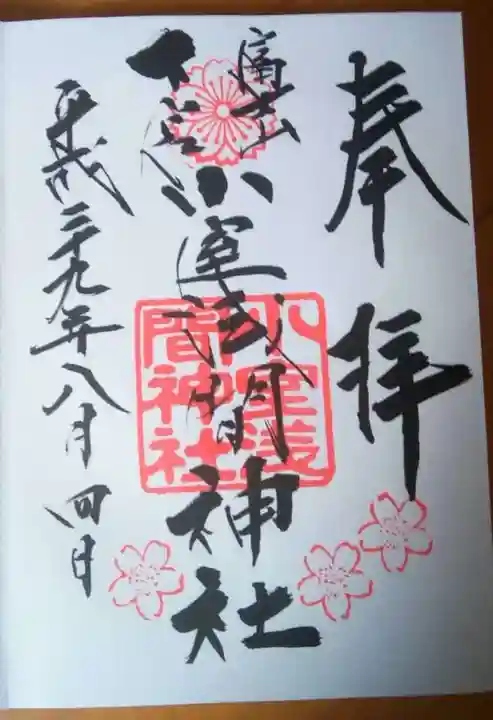 奉拝
富士山
下宮
小室浅間神社
小室浅間神社
平成二十九年八月四日